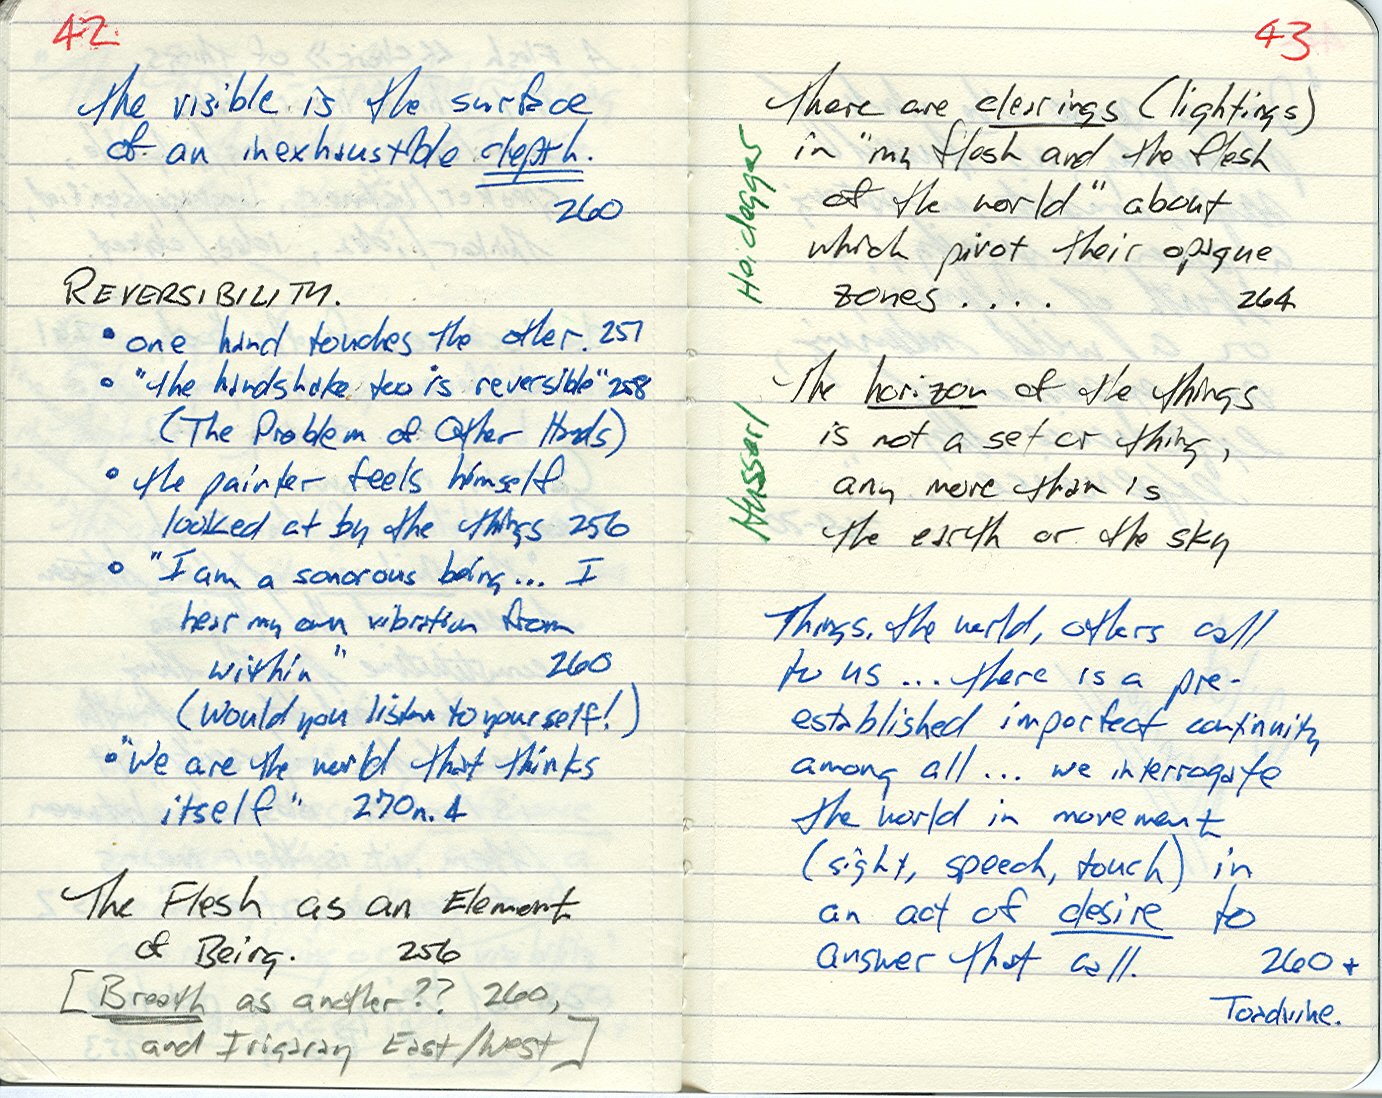 42.
the visible is the surface
of an inexhaustible depth.
260
REVERSIBILITY.
• one hand touches the other. 257
• "the handshake too is reversible" 258
(The Problem of Other Hands)
• the painter feels himself
looked at by the things 256
• "I am a sonorous being... I
hear my own vibration from
within" 260
(Would you listen to yourself!)
• "We are the world that thinks
itself" 270n.4
The Flesh as an Element
of Being. 256
[Breath as another?? 260,
and Irigaray East/West]
43
there are clearings (lightings)
in "my flesh and the flesh
of the world" about
which pivot their opaque
zones . . . . 264
Heidegger
The horizon of the things
is not a set or thing,
any more than is
the earth or the sky
Husserl
Things, the world, others call
to us ... there is a pre-
established imperfect continuity
among all ... we interrogate
the world in movement
(sight, speech, touch) in
an act of desire to
answer that call. 260 +
Toadvine.